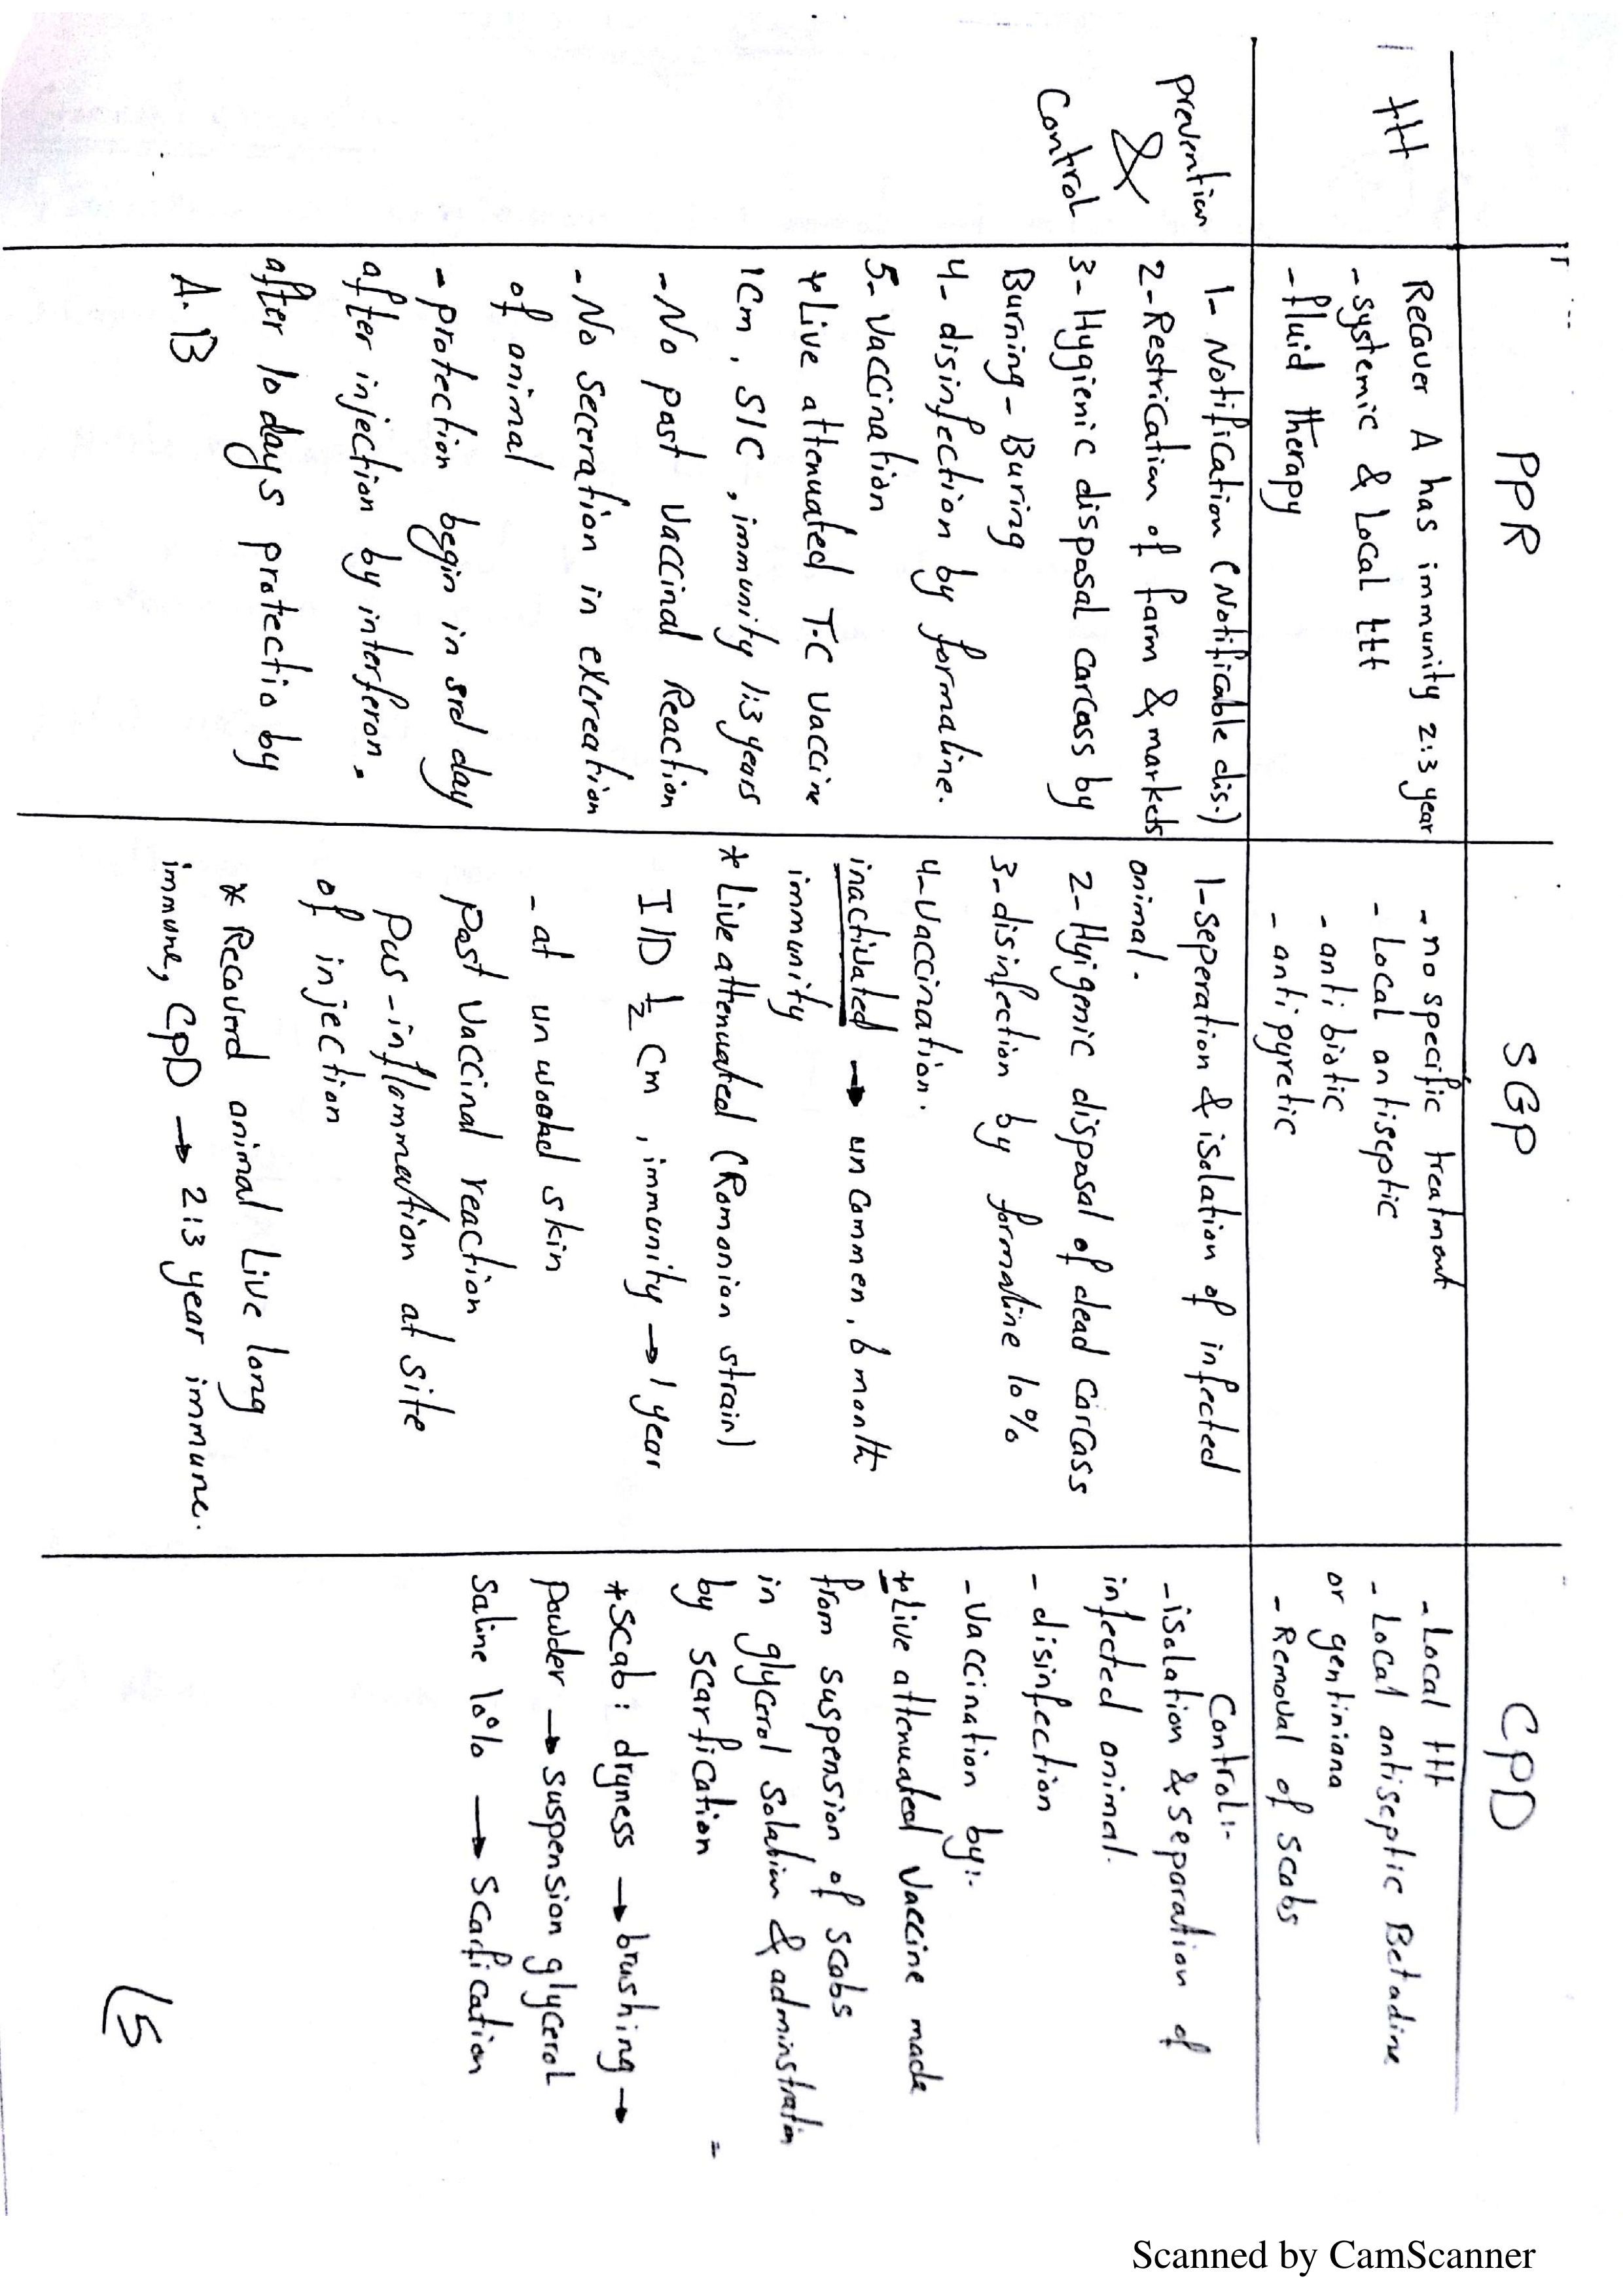 PPR
SGP
CPD
ttt
Recover A has immunity 2:3 year
- systemic & Local ttt
- fluid therapy
- no specific treatment
- Local antiseptic
- anti biotic
- anti pyretic
- Local ttt
- Local antiseptic Betadine
or gentiniana
- Removal of scabs
prevention
&
Control
1- Notification (Notificable dis.)
2- Restrication of farm & markets
3- Hygienic disposal carcass by
Burning - Buring
4- disinfection by formaline.
5- Vaccination
* Live attenuated T.C vaccine
1Cm, S/C, immunity 1:3 years
- No past Vaccinal Reaction
- No Seceration in excreation
of animal
- protection begin in 3rd day
after injection by interferon.
after 10 days protectio by
A.B
1- seperation & isolation of infected
animal.
2- Hyigenic disposal of dead carcass
3- disinfection by formaline 10%
4- Vaccination.
inactivated → un Commen, 6 month
immunity
* Live attenuated (Romanian strain)
I/D ½ Cm, immunity → 1 year
- at un wooled skin
Past Vaccinal reaction
Pus - inflammation at site
of injection
* Recoverd animal Live long
immune, CPD → 2:3 year immune.
Control:-
- isolation & separation of
infected animal.
- disinfection
- Vaccination by:-
* Live attenuated Vaccine made
from suspension of scabs
in glycerol solution & adminstration
by scarfication
* scab: dryness → brushing →
powder → suspension glycerol
saline 10% → scarfication
15
Scanned by CamScanner